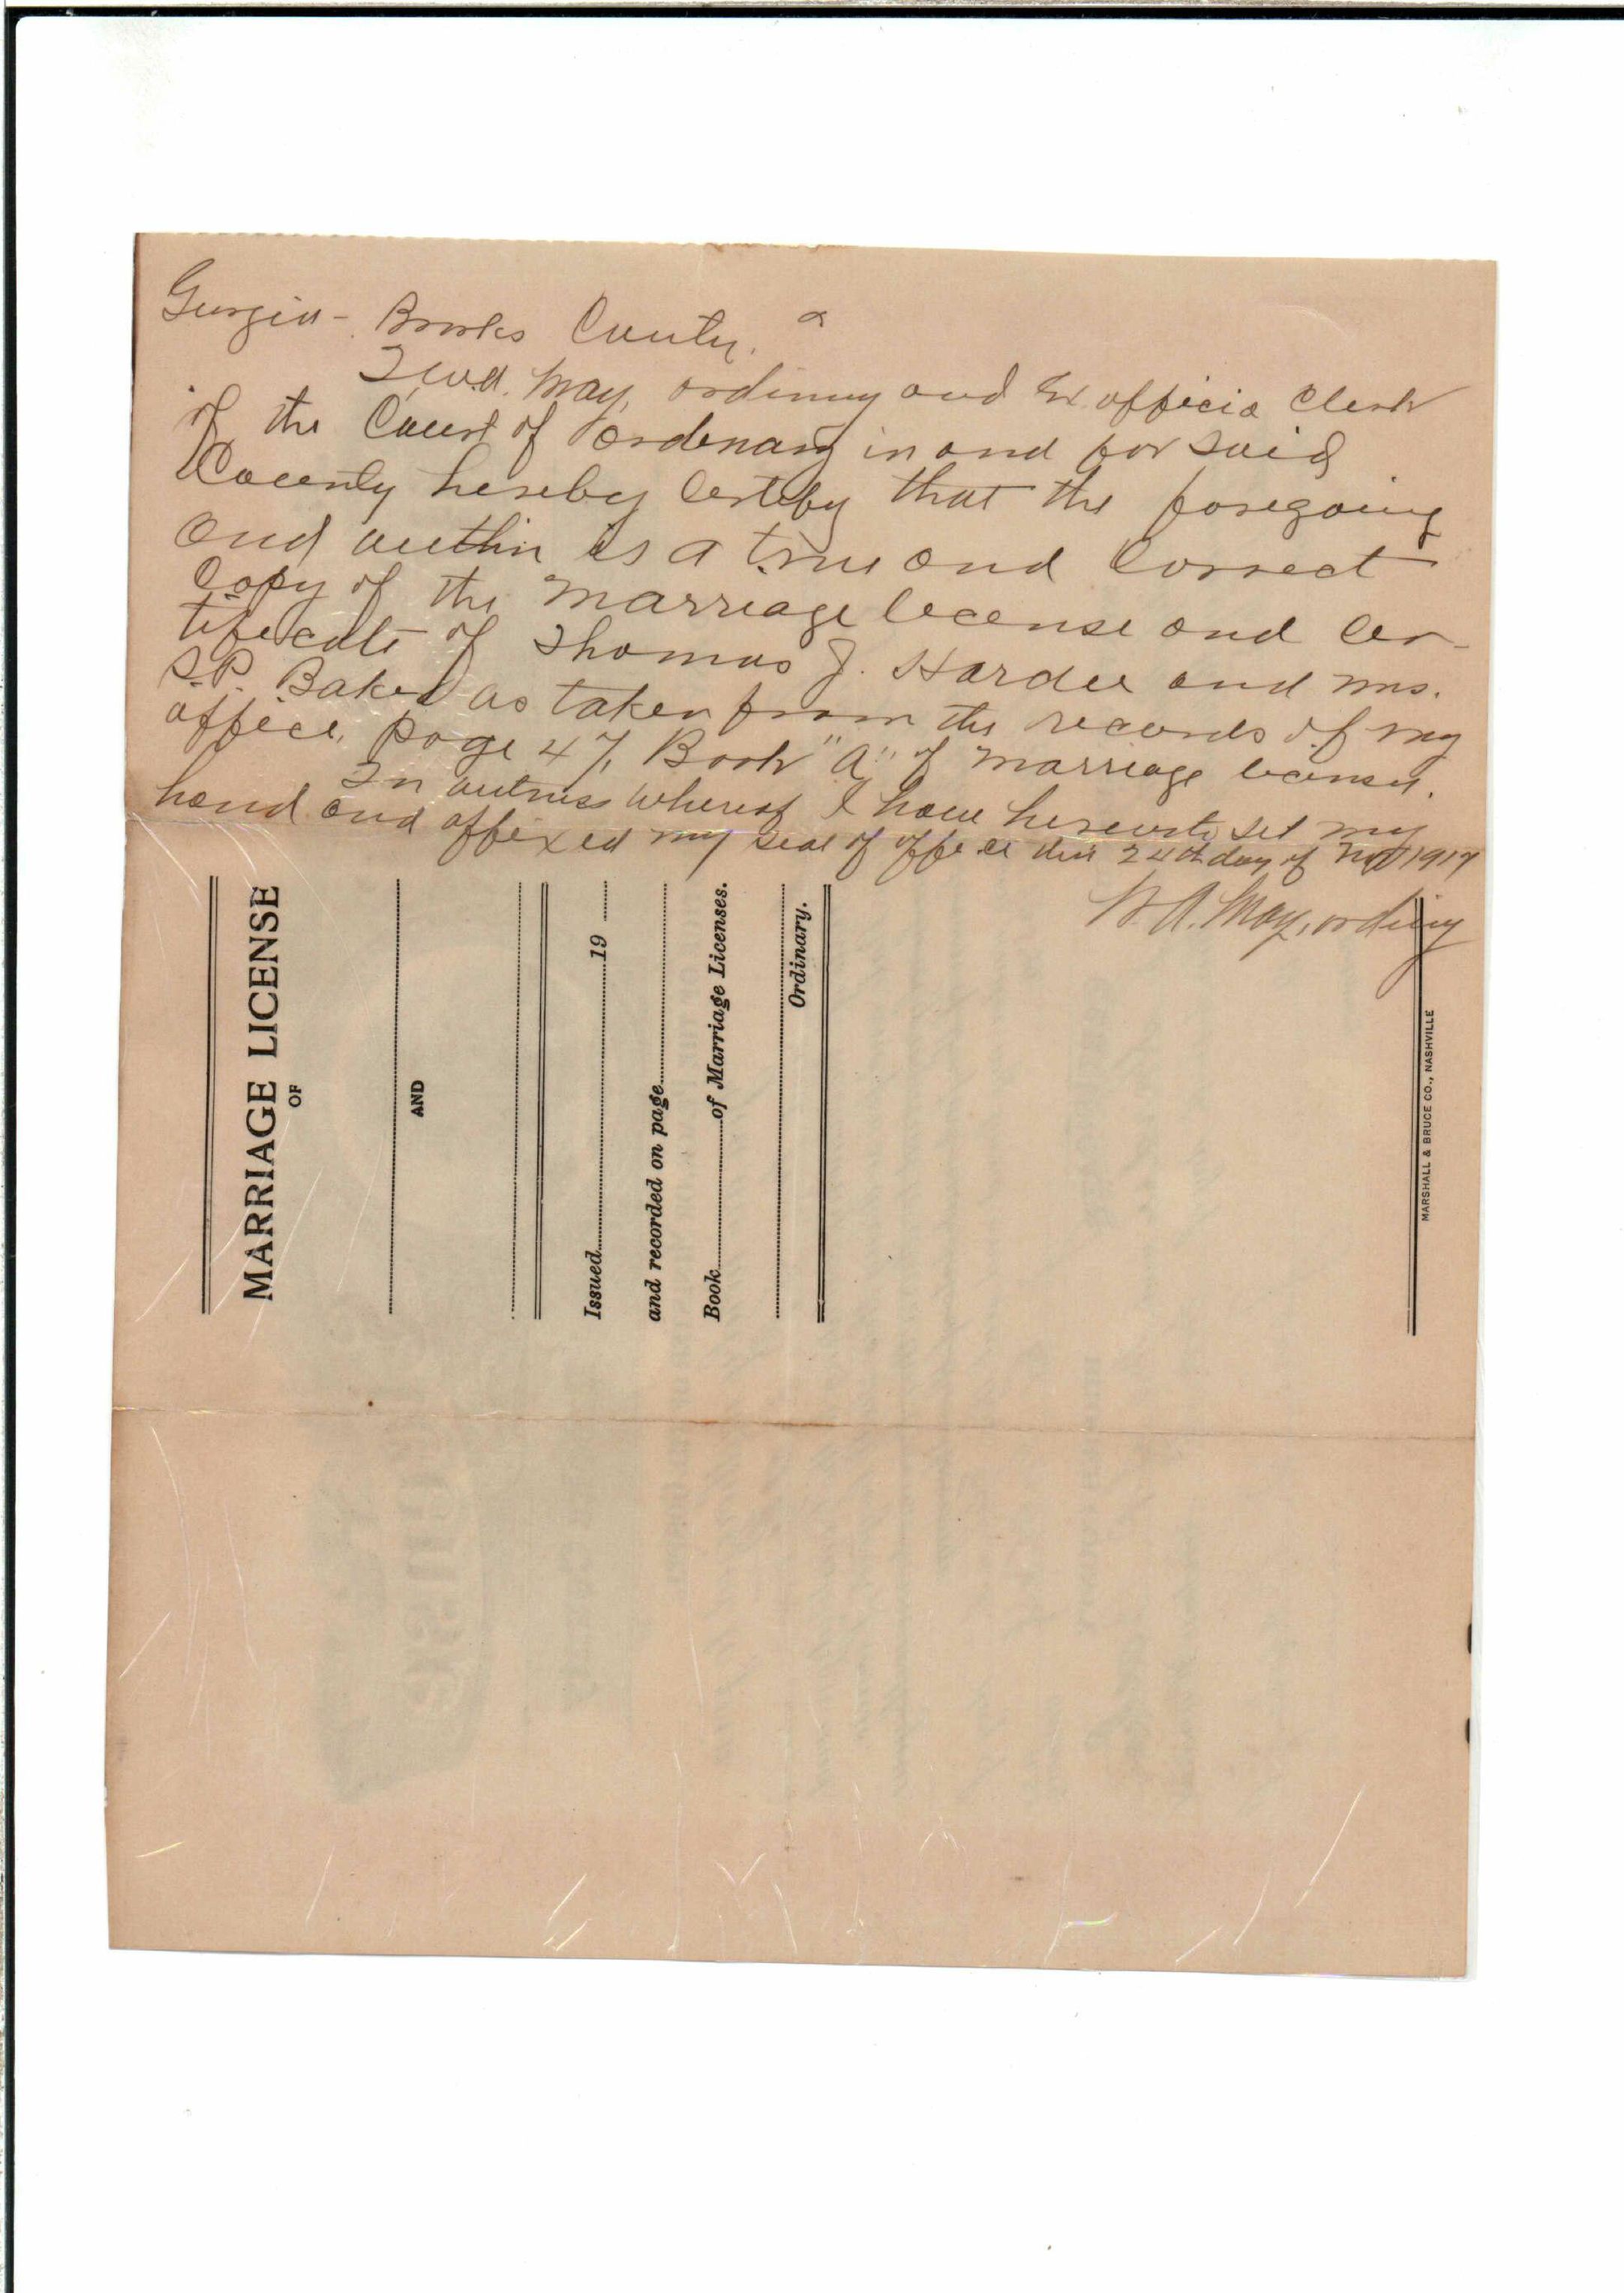 Georgia - Brooks County.
I W.A. May, ordinary and Ex officio Clerk
of the Court of Ordenary in and for said
County hereby certify that the foregoing
and within is a true and correct
Copy of the marriage license and cer-
tificate of Thomas J. Hardee and Mrs.
S.P. Baker as taken from the records of my
office, page 47, Book "A" of marriage licenses.
In witness whereof I have herewith set my
hand and affixed my seal of office this 24th day of 1917
W.A. May, ordiny
MARRIAGE LICENSE
OF
AND
Issued 19
and recorded on page
Book of Marriage Licenses.
Ordinary.
MARSHALL & BRUCE CO., NASHVILLE